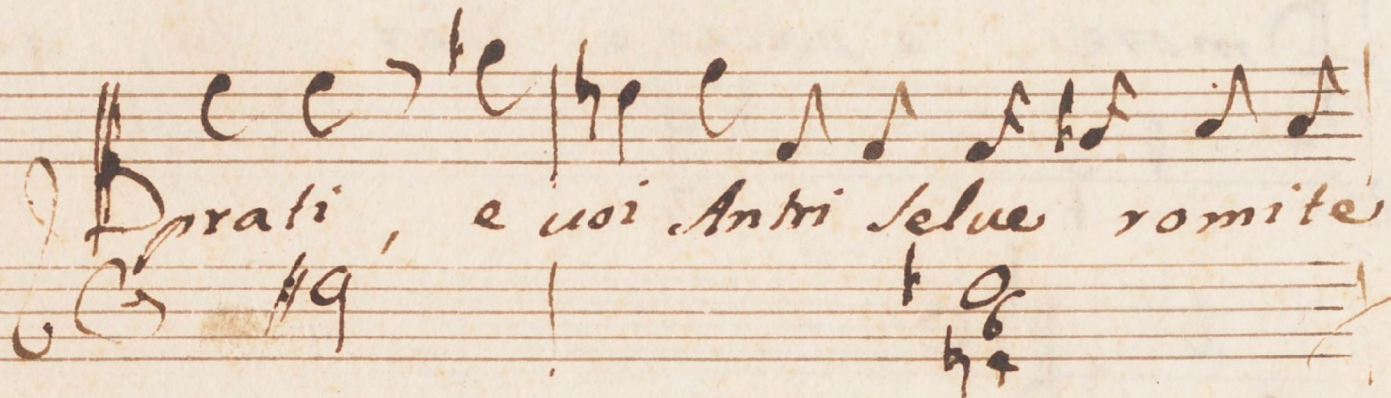 prati, e uoi Antri Selue romite
6
4